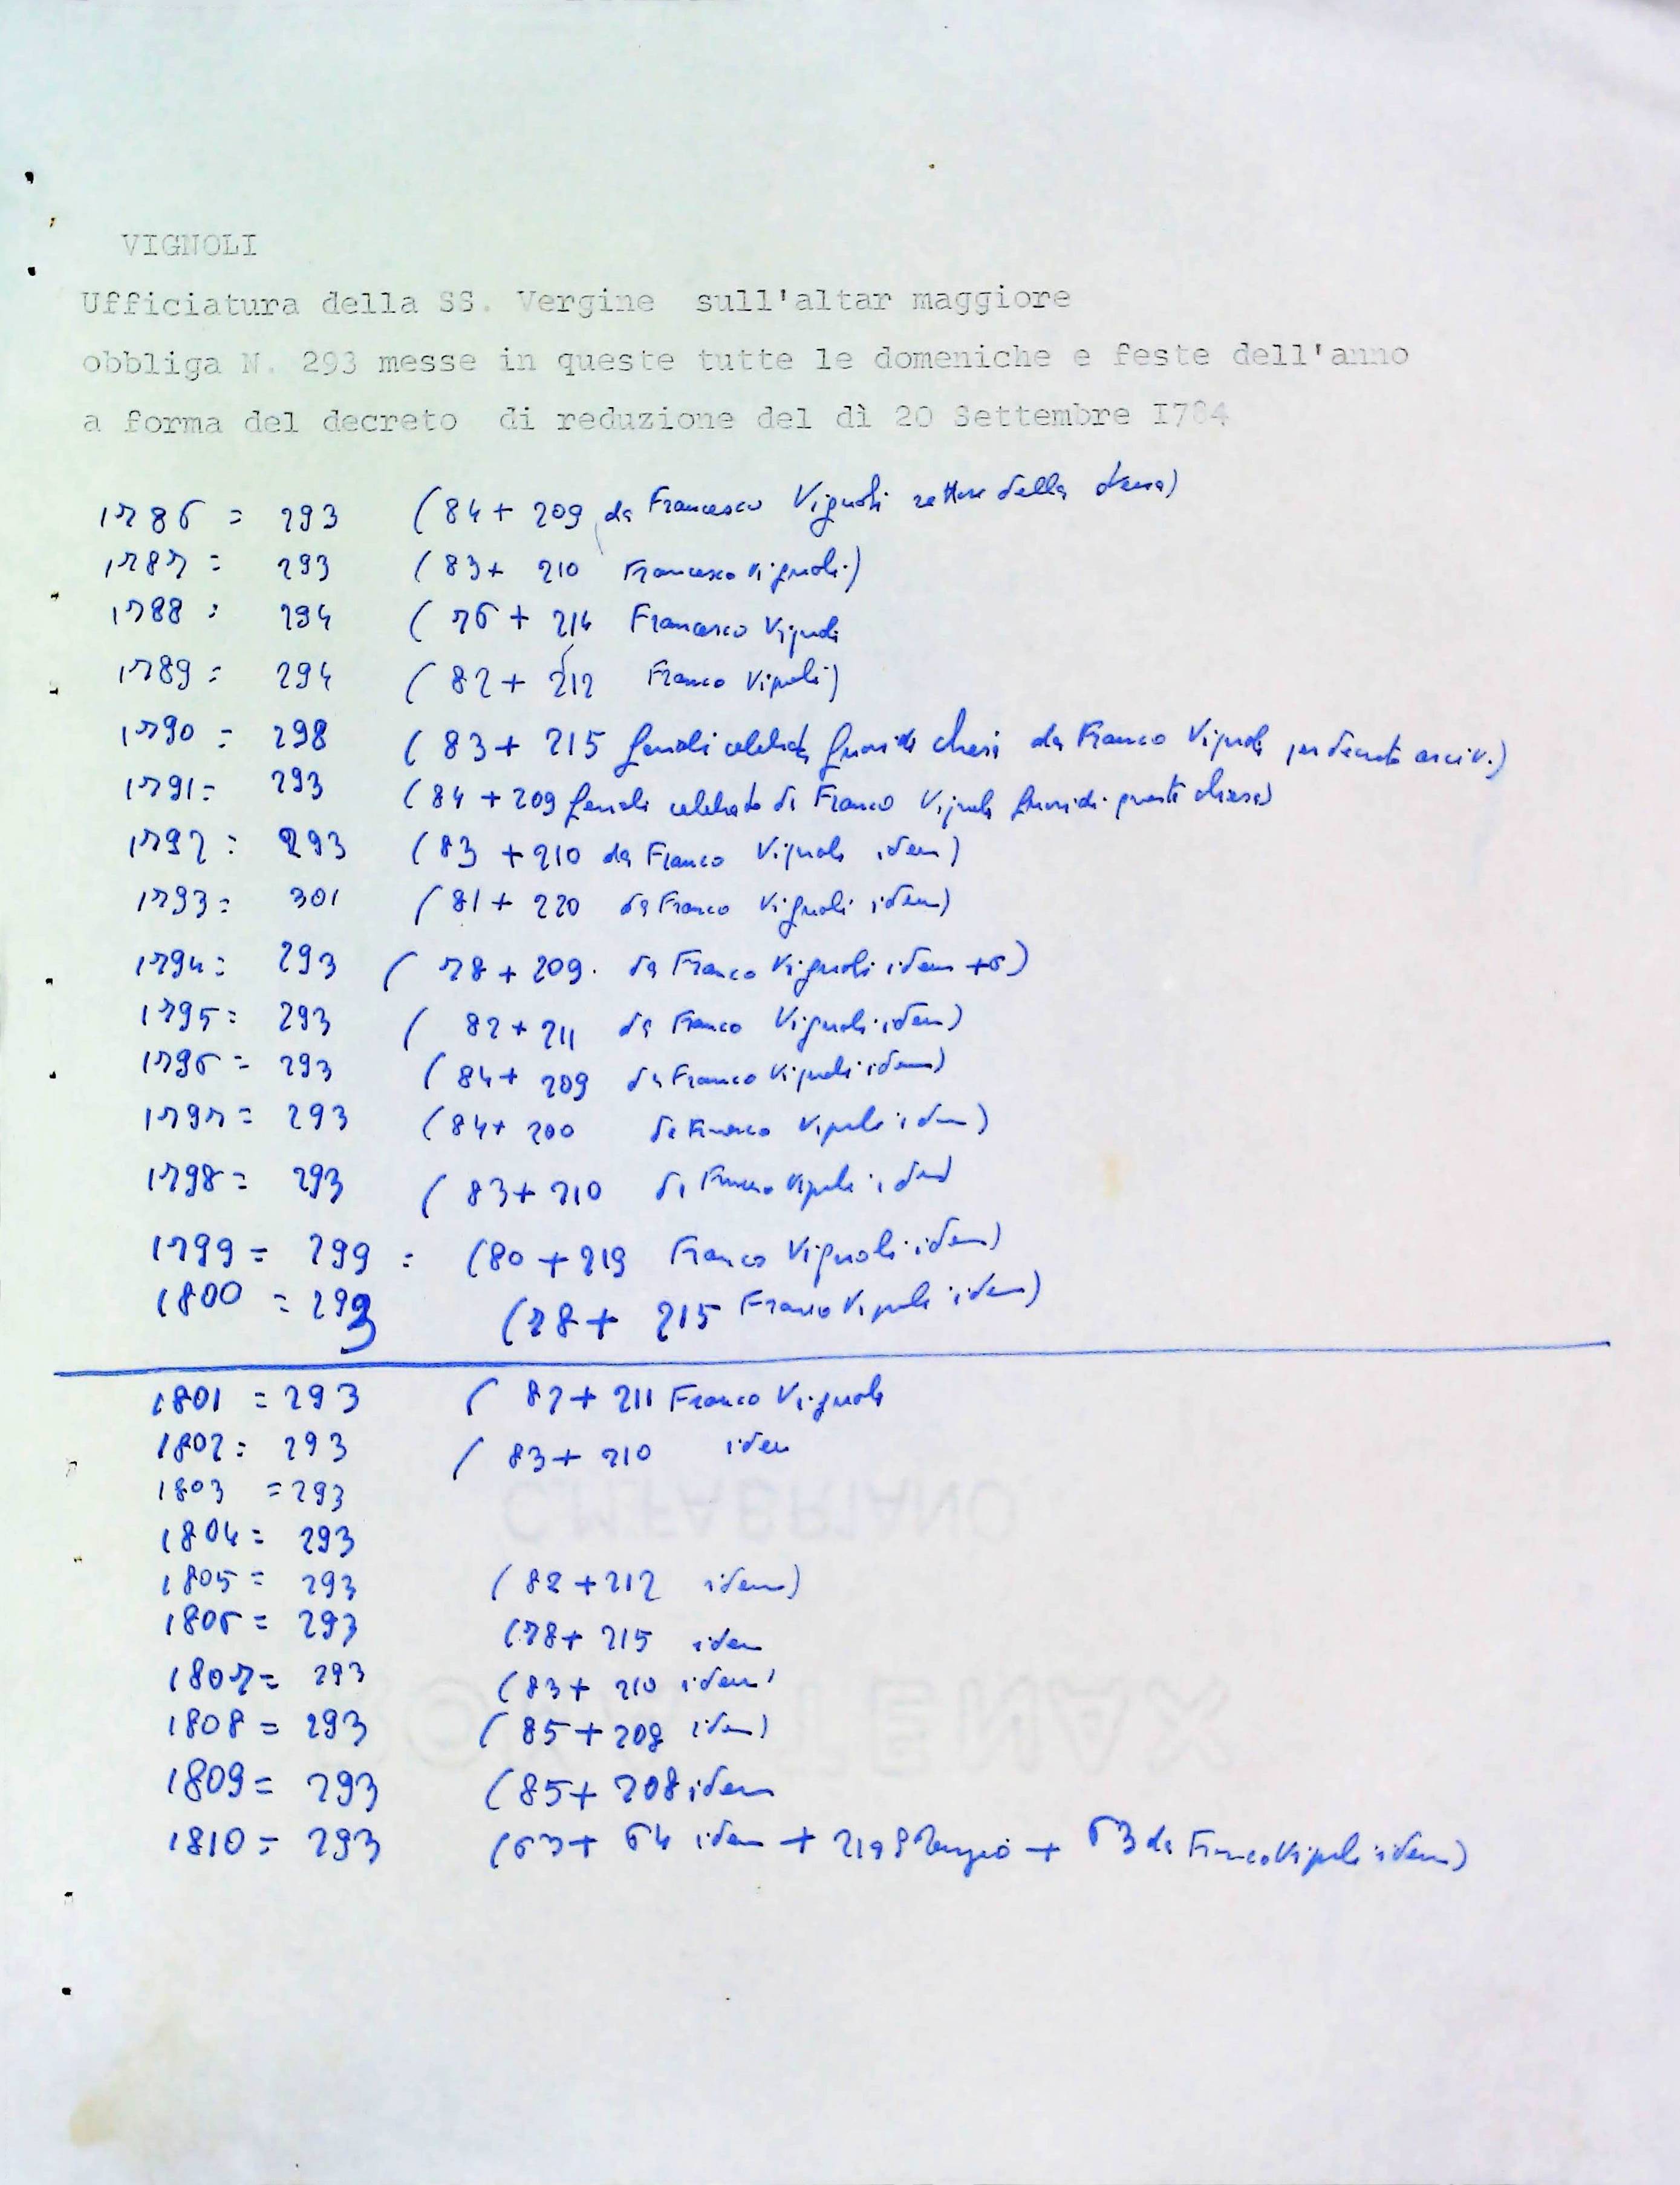 VIGNOLI
Ufficiatura della SS. Vergine sull'altar maggiore
obbliga N. 293 messe in queste tutte le domeniche e feste dell'anno
a forma del decreto di reduzione del dì 20 Settembre I784
1786 = 293 (84 + 209 da Francesco Vignoli rettore della chiesa)
1787 = 293 (83 + 210 Francesco Vignoli)
1788 = 294 (76 + 214 Francesco Vignoli
1789 = 294 (82 + 212 Franco Vignoli)
1790 = 298 (83 + 215 feriali celebrate fuori di chiesa da Franco Vignoli per decreto arciv.)
1791 = 293 (84 + 209 feriali celebrate da Franco Vignoli fuori di questa chiesa)
1792 = 293 (83 + 210 da Franco Vignoli idem)
1793 = 301 (81 + 220 da Franco Vignoli idem)
1794 = 293 (78 + 209. da Franco Vignoli idem +6)
1795 = 293 (82 + 211 da Franco Vignoli idem)
1796 = 293 (84 + 209 da Franco Vignoli idem)
1797 = 293 (84 + 200 da Franco Vignoli idem)
1798 = 293 (83 + 210 da Franco Vignoli idem)
1799 = 299 = (80 + 219 Franco Vignoli idem)
1800 = 293 (78 + 215 Franco Vignoli idem)
1801 = 293 (82 + 211 Franco Vignoli
1802 = 293 (83 + 210 idem
1803 = 293
1804 = 293
1805 = 293 (82 + 212 idem)
1806 = 293 (78 + 215 idem
1807 = 293 (83 + 210 idem)
1808 = 293 (85 + 208 idem)
1809 = 293 (85 + 208 idem
1810 = 293 (63 + 64 idem + + 63 da Franco Vignoli idem)
C.M.FABRIANO
TENAX